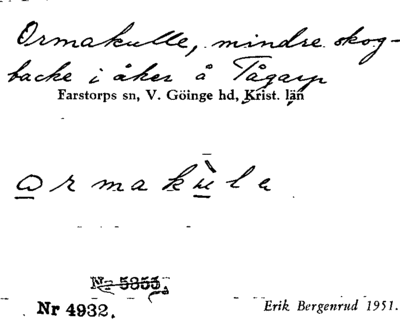 Ormakulle, mindre skog-
backe i åker å Tågarp
Farstorps sn, V. Göinge hd, Krist. län
ormakùle
Nr 5355.
Nr 4932.
Erik Bergenrud 1951.